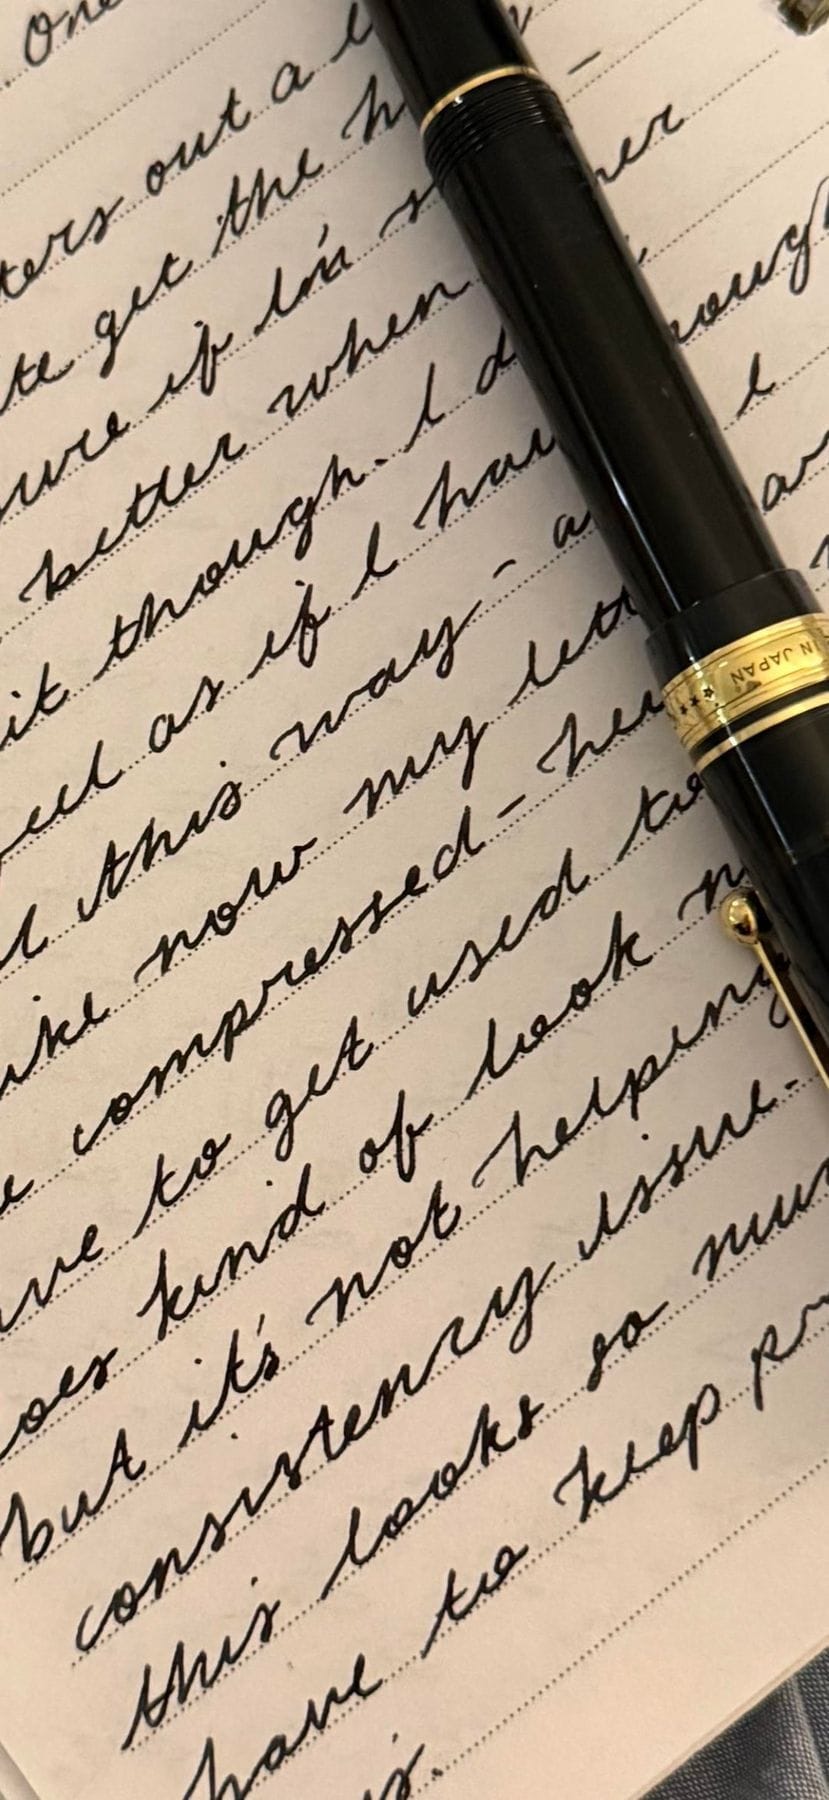 One
ters out a
te get the h
sure if I'm s ner
better when
it though. I d nough
eed as if I hav I
l this way - a ar
like now my lett
e compressed - her
ave to get used to
oes kind of look n
but it's not helping
consistency issue.
this looks so mu
have to keep pr
is.
IN JAPAN